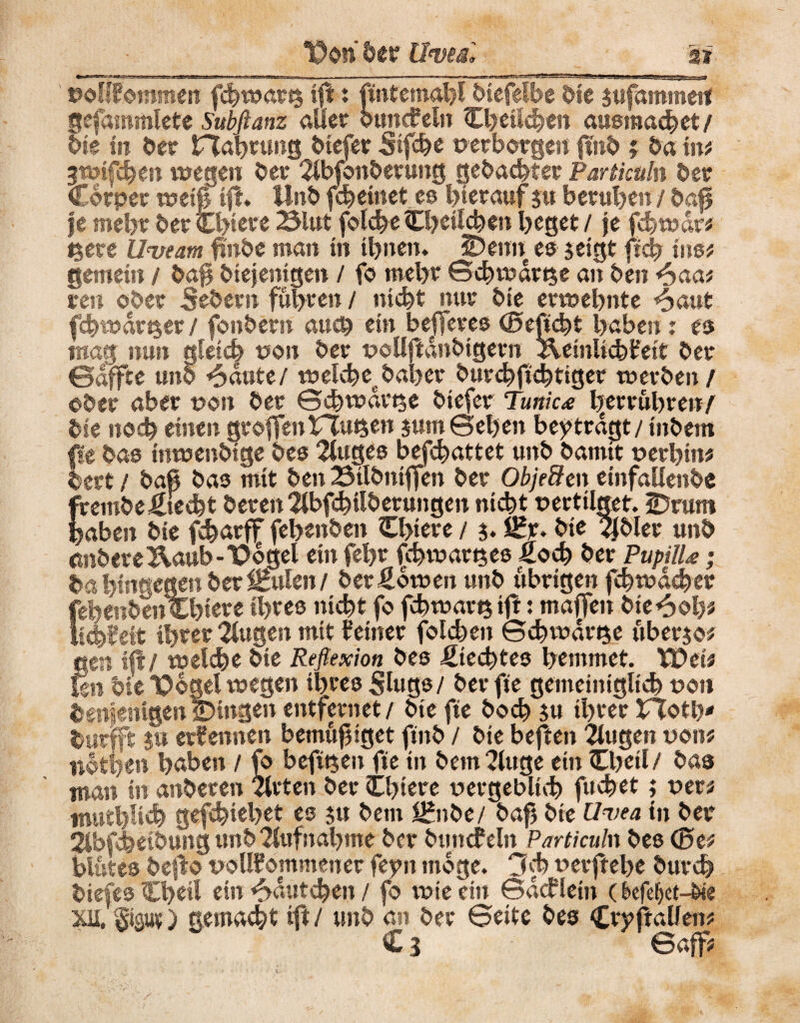 Von der Uvea. 21
vollkommen schwartz ist: sintemahl dieselbe die zusammen
gesammlete Substanz aller dunckeln Theilchen ausmachet/
die in der Nahrung dieser Fische verborgen sind; da in-
zwischen wegen der Absonderung gedachter Particuln der
Cörper weiß ist. Und scheinet es hierauf zu beruhen/ daß
je mehr der Thiere Blut solche Theilchen heget/ je schwär-
tzere Uveam finde man in ihnen. Denn es zeigt sich ins-
gemein/ daß diejenigen/ so mehr Schwärtze an den Haa-
ren oder Federn führen/ nicht nur die erwehnte Haut
schwärtzer/ sondern auch ein besseres Gesicht haben: es
mag nun gleich von der vollständigern Reinlichkeit der
Säffte und Häute/ welche daher durchsichtiger werden/
oder aber von der Schwärtze dieser Tunicæ herrühren/
die noch einen grossen Nutzen zum Sehen beyträgt/ indem
sie das inwendige des Auges beschattet und damit verhin-
dert/ daß das mit den Bildnissen der Objecten einfallende
frembde Liecht deren Abschilderungen nicht vertilget. Drum
haben die scharff sehenden Thiere/ z. Ex. die Adler und
andere Raub-Vögel ein sehr schwartzes Loch der Pupillæ;
da hingegen der Eulen/ der Löwen und übrigen schwächer
sehenden Thiere ihres nicht so schwartz ist: massen die Höh-
lichkeit ihrer Augen mit keiner solchen Schwärtze überzo-
gen ist/ welche die Reflexion des Liechtes hemmet. Wei-
len die Vögel wegen ihres Flugs/ der sie gemeiniglich von
denjenigen Dingen entfernet/ die sie doch zu ihrer Noth-
durfft zu erkennen bemüßiget sind/ die besten Augen von-
nöthen haben/ so besitzen sie in dem Auge ein Theil/ das
man in anderen Arten der Thiere vergeblich suchet; ver-
muthlich geschiehet es zu dem Ende/ daß die Uvea in der
Abscheidung und Aufnahme der dunckeln Particuln des Ge-
blütes desto vollkommener seyn möge. Ich verstehe durch
dieses Theil ein Häutchen/ so wie ein Säcklein (besehet die
XII. Figur) gemacht ist/ und an der Seite des Crystallen-
C 3 Saff-